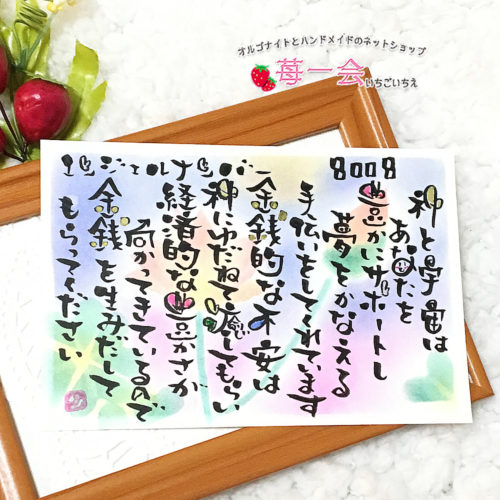 オルゴナイトとハンドメイドのネットショップ
苺一会 いちごいちえ
エンジェルナンバー 8008
神と宇宙は
あなたを
豊かにサポートし
夢をかなえる
手伝いをしてくれています
金銭的な不安は
神にゆだねて癒してもらい
経済的な豊かさが
向かってきているので
金銭を生みだして
もらってください